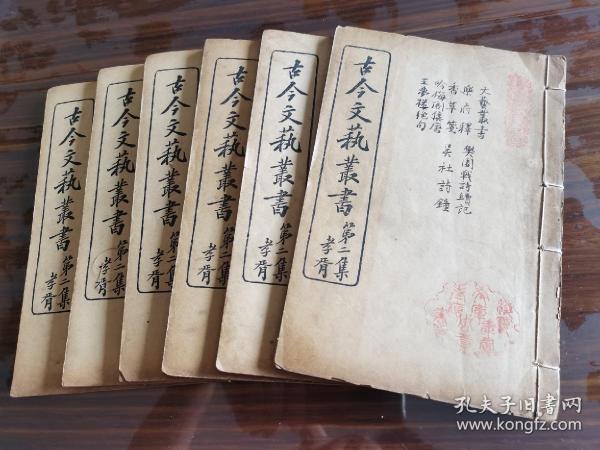 古今文藝叢書 第二集 孝胥
古今文藝叢書 第二集 孝胥
古今文藝叢書 第二集 孝胥
古今文藝叢書 第二集 孝胥
古今文藝叢書 第二集 孝胥
古今文藝叢書 第二集 孝胥
文藝叢書
樂府釋
香草箋 吳社詩鐘
孔夫子旧书网
www.kongfz.com